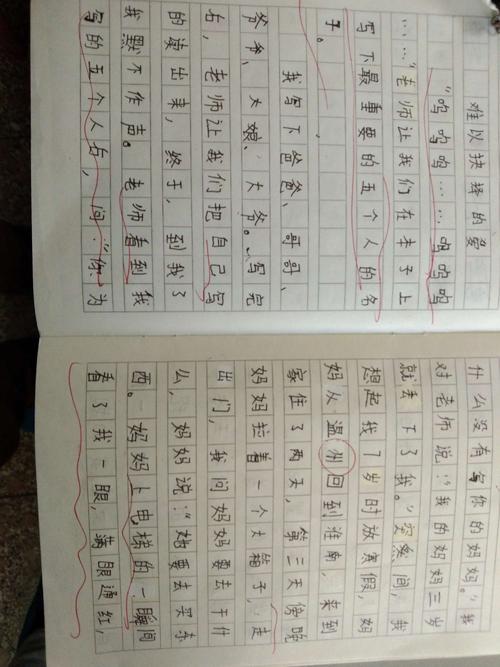 难以抉择的爱
“呜呜呜……呜呜呜
……”老师让我们在本子上
写下最重要的五个人的名
子。
我写下爸爸、哥哥、
爷爷、大娘、大爷。写完
右，老师让我们把自己写
的读出来，终于，到我了
我默不作声。老师看到我
写的五个人右，问：“你为
什么没有写你的妈妈。”我
对老师说：“我的妈妈三岁
就丢下了我。”突然间，我
想起我7岁时放寒假，妈
妈从温州回到淮南，来到
家住了两天，第三天傍晚
妈妈拉着一个大箱子，走
出门，我问妈妈要去干什
么，妈妈说：“她要去买东
西。妈妈上电梯的一瞬间
看了我一眼，满眼通红，